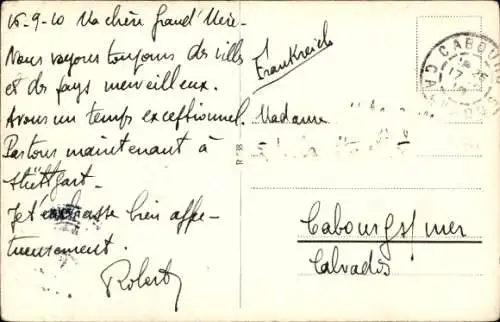 15-9-10 Ma chère Grand'Mère-
Nous voyons toujours des villes
et des pays merveilleux.
Avons un temps exceptionnel.
Partons maintenant à
Stüttgart-
Je t'embrasse bien affec-
tueusement.
Robert
Frankreich
Madame
Cabourg s/mer
Calvados
CABOURG
17